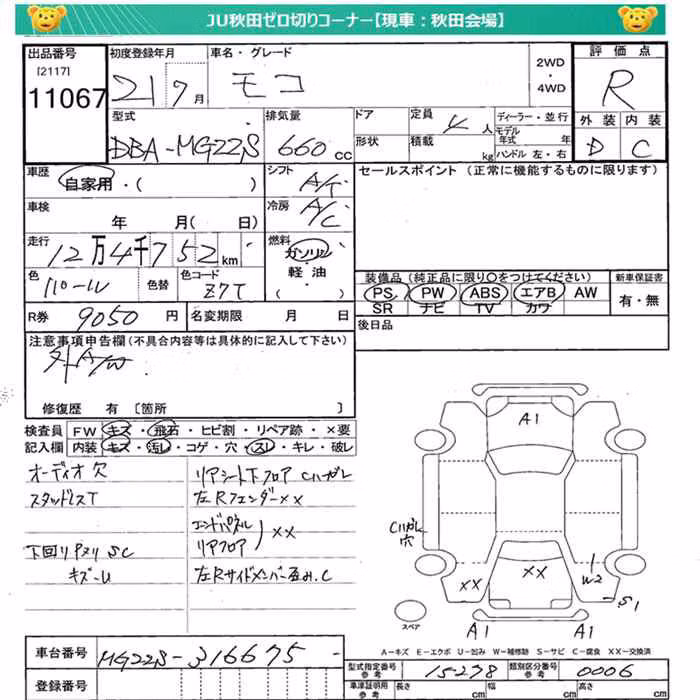 JU秋田ゼロ切りコーナー【現車：秋田会場】
出品番号 初度登録年月 車名・グレード 2WD ・ 4WD 評価点
[2117]
11067 21年7月 モコ R
型式 排気量 ドア 定員 4人 ディーラー・並行 外装 内装
DBA-MG22S 660cc 形状 積載 kg モデル年式 年 ハンドル 左・右 D C
車歴 シフト セールスポイント（正常に機能するものに限ります）
自家用・（ ） A/T
車検 冷房
年 月（ 日） A/C
走行 燃料
12万4千752km ガソリン
色 色替 色コード 軽油
パール Z7T （ ） 装備品（純正品に限り○をつけてください） 新車保証書
PS PW ABS エアB AW 有・無
SR ナビ TV カワ
R券 9050円 名変期限 月 日 後日品
注意事項申告欄（不具合内容等は具体的に記入して下さい）
外A/W
修復歴 有 〔箇所 〕
検査員 FW キズ・飛石・ヒビ割・リペア跡・×要
記入欄 内装 キズ・汚レ・コゲ・穴・スレ・キレ・破レ
オーディオ欠 リアシート下フロア Cハガレ
スタッドレスT 左Rフェンダー××
エンドパネル
リアフロア ××
下回りサメリ SC
キズ-U 左Rサイドメンバー歪み.C
A1
Cハガレ
穴
×× ×× W2
S1
A1 A1
スペア
A－キズ E－エクボ U－凹み W－補修跡 S－サビ C－腐食 XX－交換済
車台番号 MG22S-316675
型式指定番号 参考 15278 類別区分番号 参考 0006
登録番号 車津証明用 参考 長さ cm 幅 cm 高さ cm